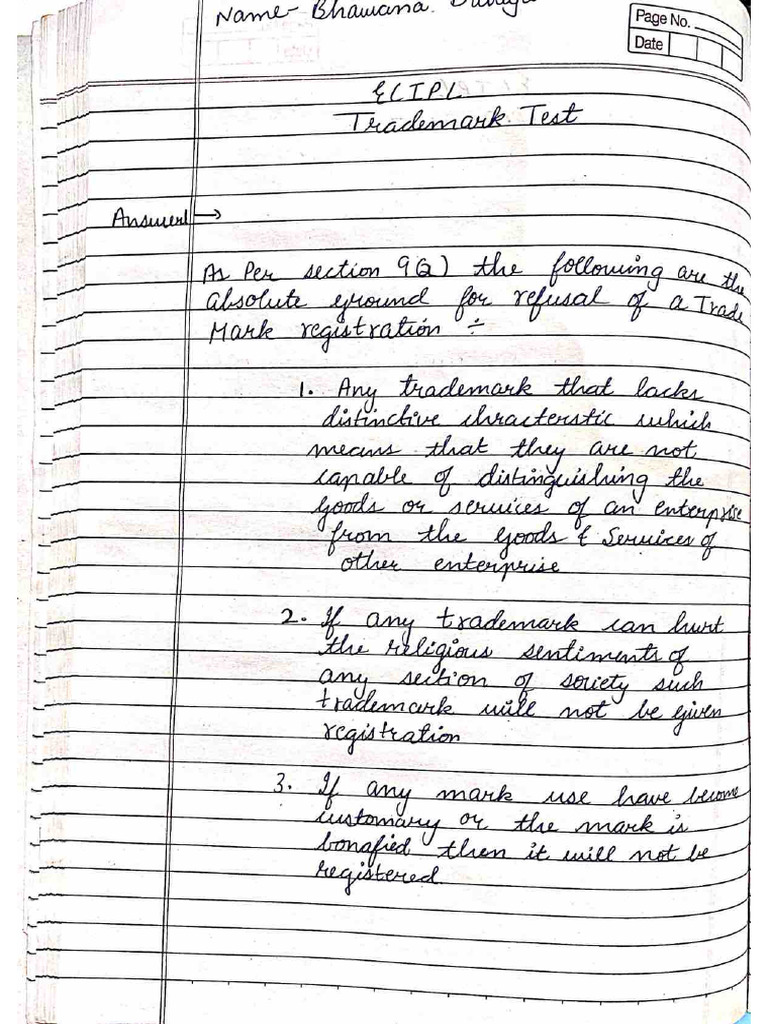 Name- Bhawana
Page No.
Date
ECIPL
Trademark Test
Answer1 →
As Per section 9(2) the following are the
absolute ground for refusal of a Trade
Mark registration ÷
1. Any trademark that lacks
distinctive chracterstic which
means that they are not
capable of distinguishing the
goods or services of an enterprise
from the goods & services of
other enterprise
2. If any trademark can hurt
the religious sentiments of
any section of society such
trademark will not be given
registration
3. If any mark use have become
customary or the mark is
bonafied then it will not be
registered